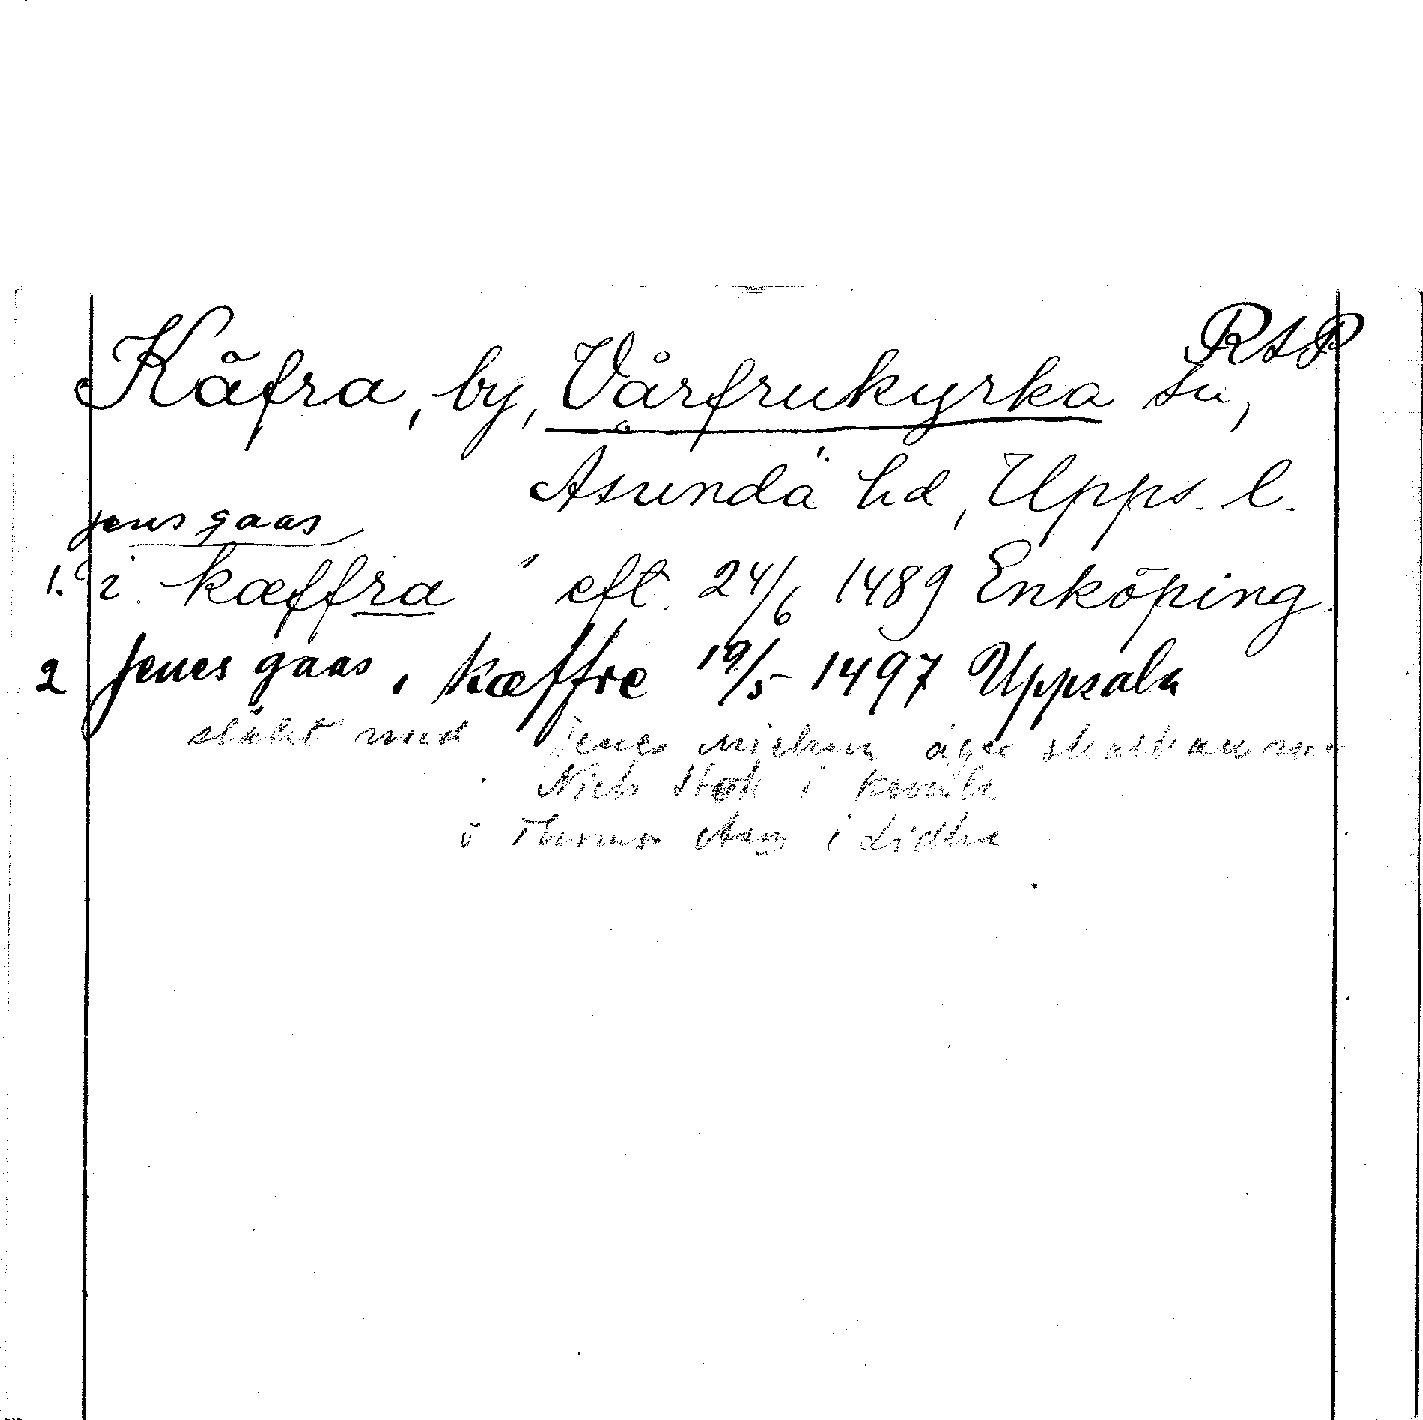 RAP
Käfra, by, Vårfrukyrka sn,
Asunda hd, Upps. l.
jens gaas
1. "i kæffra" eft. 24/6 1489 Enköping.
2 jenes gaas i kæffre 19/5 1497 Uppsala
släkt med jenes
Niels i
o Thomas i Lidhra